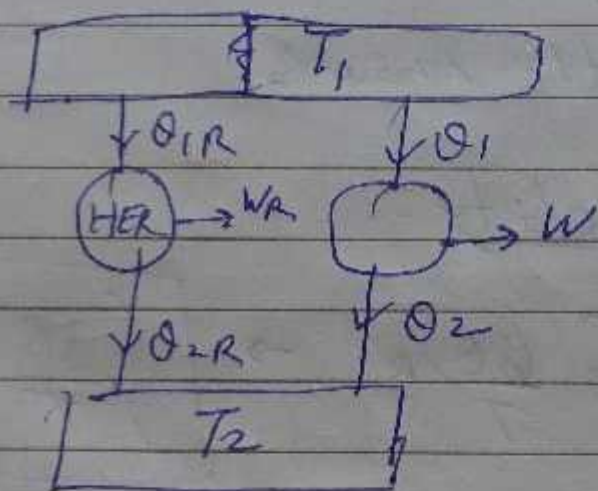 T₁
Q₁R Q₁
HER WR W
Q₂R Q₂
T₂